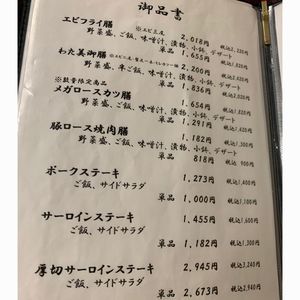 御品書
エビフライ膳 ※エビ三尾 2,018円 税込2,220円
野菜盛、ご飯、味噌汁、漬物、小鉢、デザート
単品 1,655円 税込1,820円
わた美御膳 2,200円 税込2,420円
野菜盛、半ご飯、味噌汁、漬物、小鉢、デザート
単品 1,836円
※数量限定商品
メガロースカツ膳 1,654円 税込1,820円
野菜盛、ご飯、味噌汁、漬物、小鉢、デザート
単品 1,291円 税込1,420円
豚ロース焼肉膳 1,182円 税込1,300円
野菜盛、ご飯、味噌汁、漬物、小鉢、デザート
単品 818円 税込 900円
ポークステーキ 1,273円 税込1,400円
ご飯、サイドサラダ
単品 1,000円 税込1,100円
サーロインステーキ 1,455円 税込1,600円
ご飯、サイドサラダ
単品 1,182円 税込1,300円
厚切サーロインステーキ 2,945円 税込3,240円
ご飯、サイドサラダ
単品 2,673円 税込2,940円